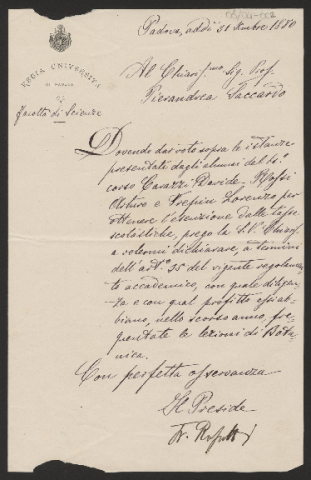 Padova, addì 31 Xmbre 1880
REGIA UNIVERSITÀ
DI PADOVA
Facoltà di Scienze
Al Chiar.mo Sig. Prof.
Pierandrea Saccardo
Dovendo dar voto sopra le istanze
presentate dagli alunni del
corso Carazzi Davide - Rossi
e Lorenzo per
ottenere l'esenzione dalle tasse
scolastiche, prego la S. V. Chiar.
a volermi dichiarare, a termini
dell'art.° 35 del vigente regolamen
to accademico, con quale diligen
za e con qual profitto essi ab
biano, nello scorso anno, fre
quentate le lezioni di Bota
nica.
Con perfetta osservanza
Il Preside